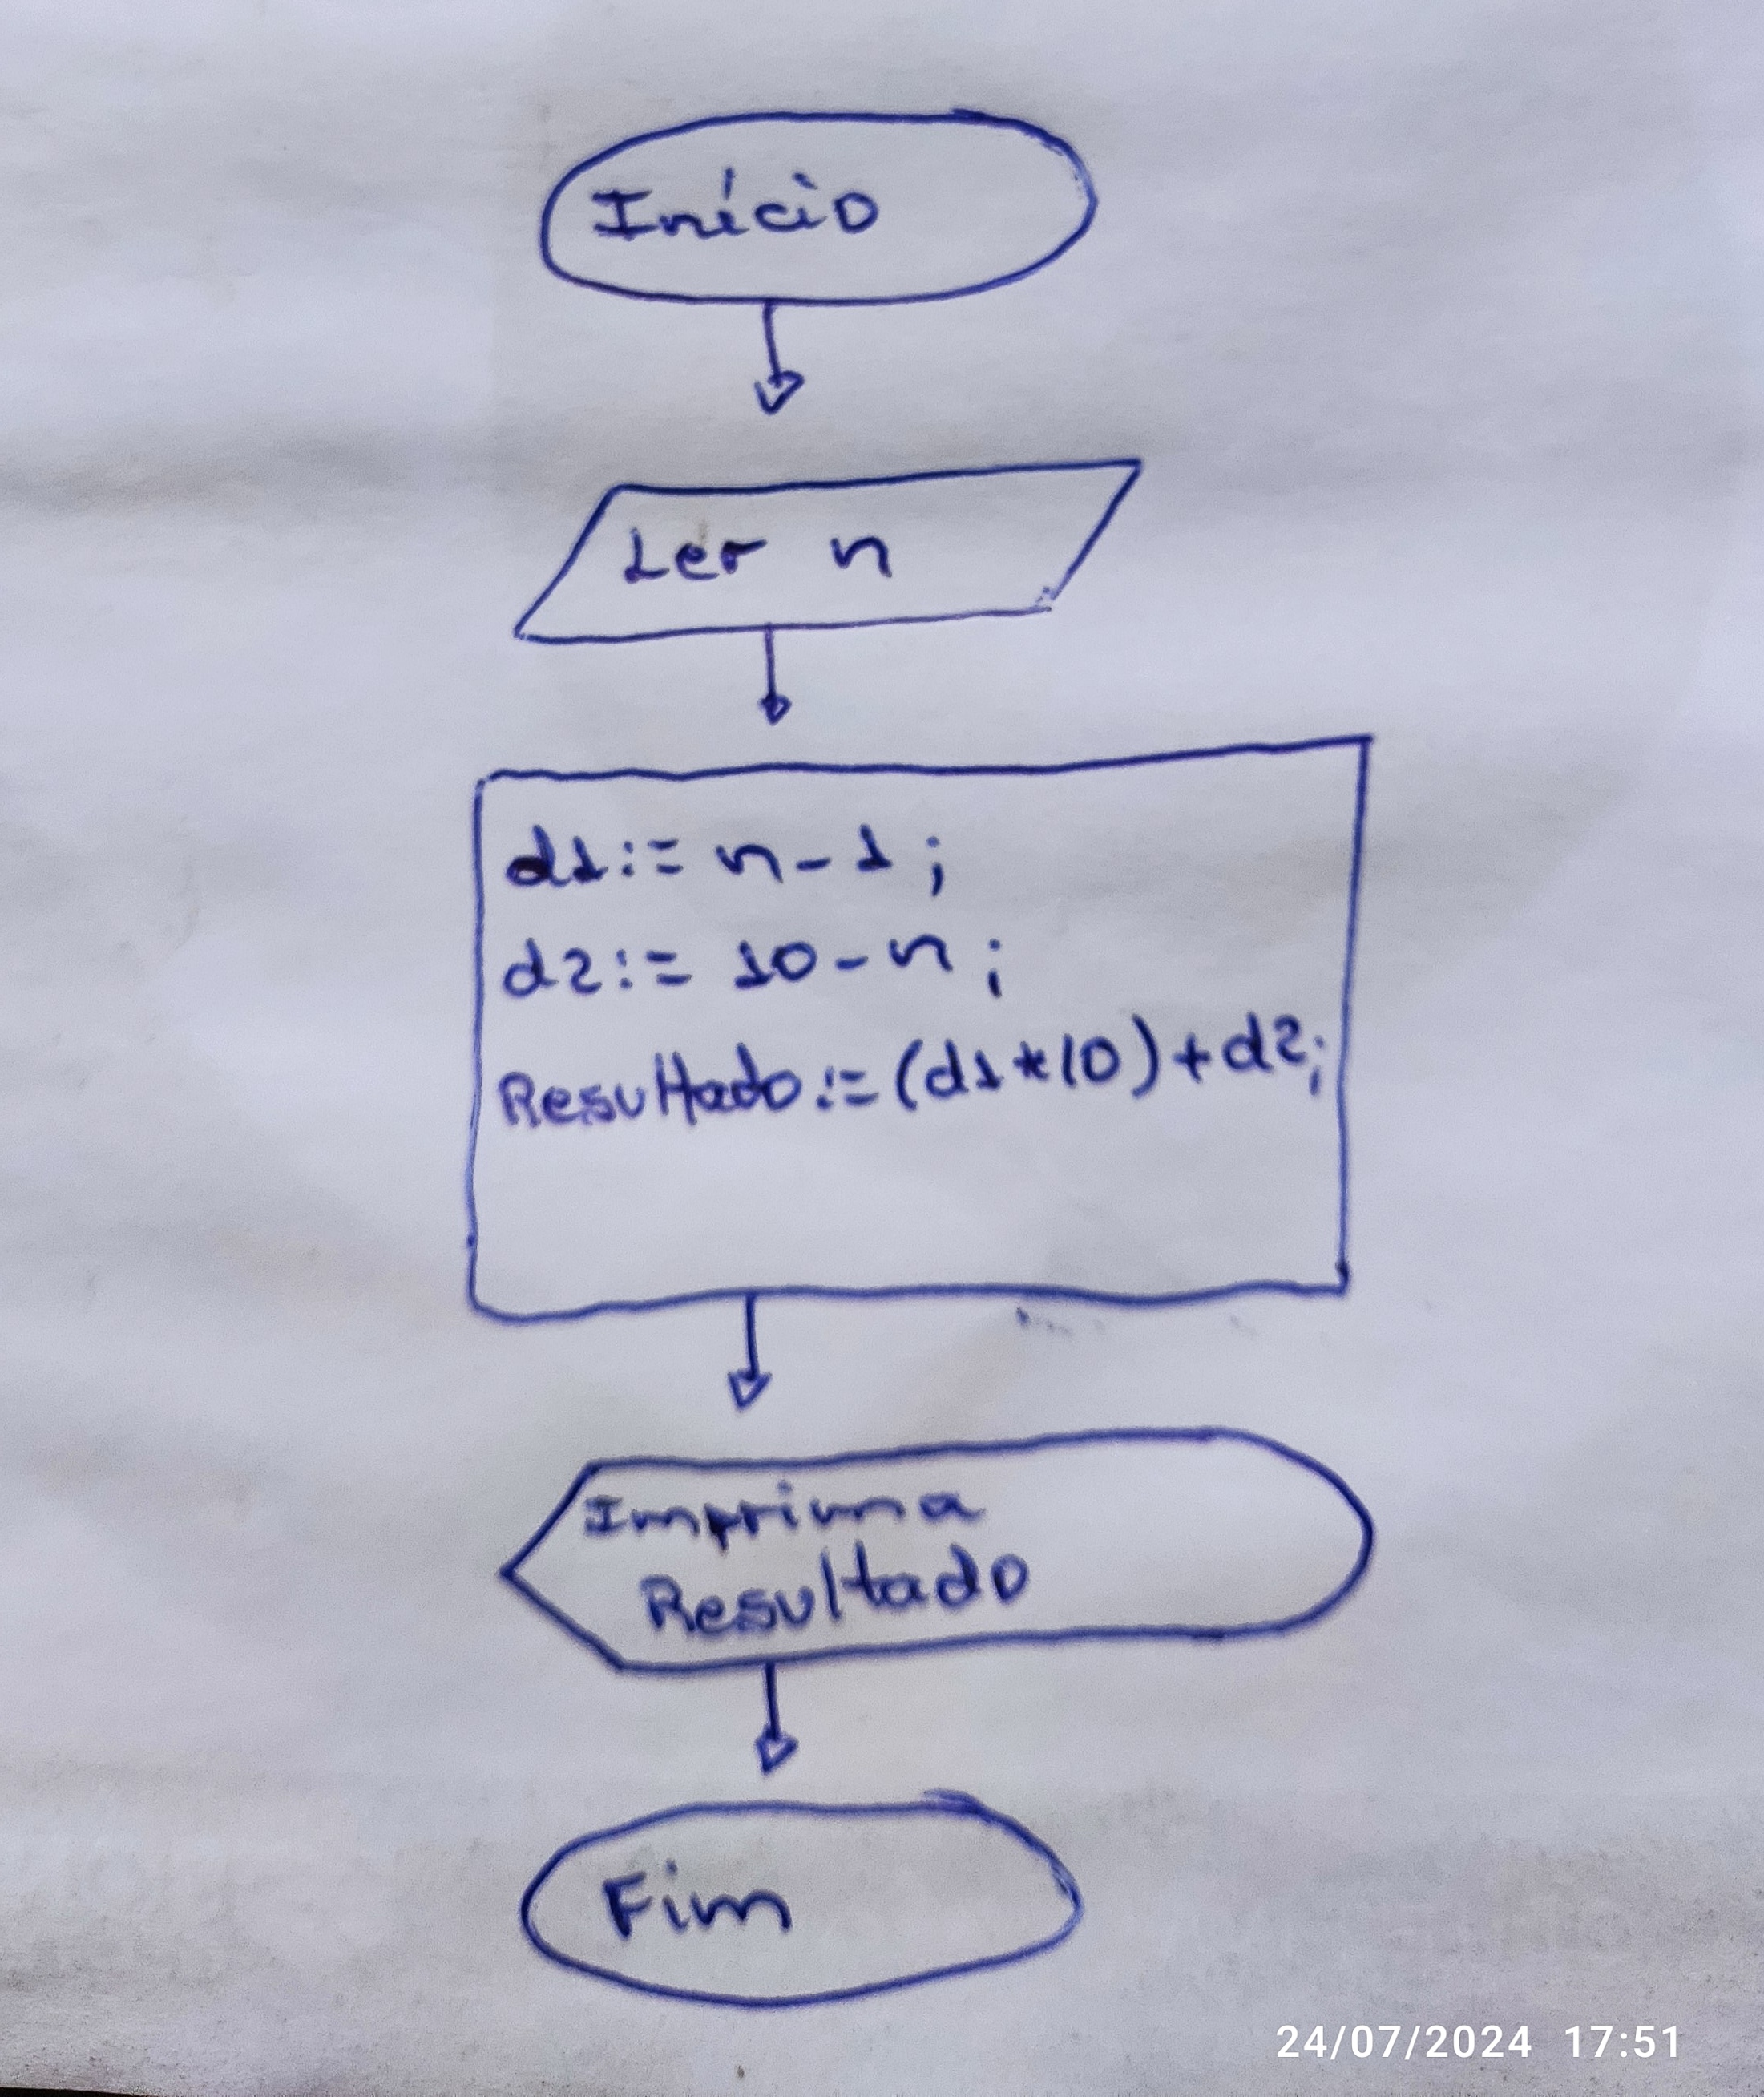 Início
Ler n
d1:= n-1;
d2:= 10-n;
Resultado:=(d1*10)+d2;
Imprima
Resultado
Fim
24/07/2024 17:51